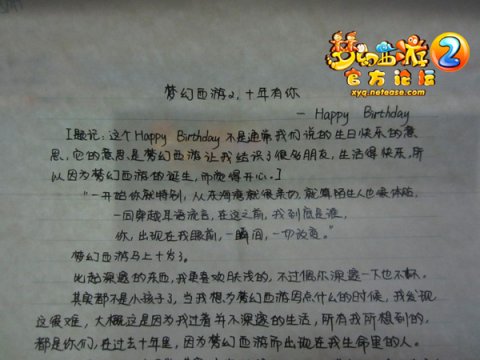 梦幻西游2
官方论坛
xyq.netease.com
梦幻西游2,十年有你
— Happy Birthday
[题记:这个Happy Birthday不是通常我们说的生日快乐的意
思,它的意思是梦幻西游让我结识了很多朋友,生活得快乐,所
以因为梦幻西游的诞生,而觉得开心。]
"一开始你就特别,从东海湾就很亲切,就算陌生人也很体贴,
一回穿越耳语流言,在这之前,我到底是谁,
你,出现在我眼前,一瞬间,一切改变。"
梦幻西游马上十岁了。
比起深邃的东西,我更喜欢肤浅的,不过偶尔深邃一下也不赖。
其实都不是小孩子了,当我想为梦幻西游写点什么的时候,我发现
这很难,大概这是因为我过着并不深邃的生活,所有我所想到的,
都是你们,在过去十年里,因为梦幻西游而出现在我生命里的人。